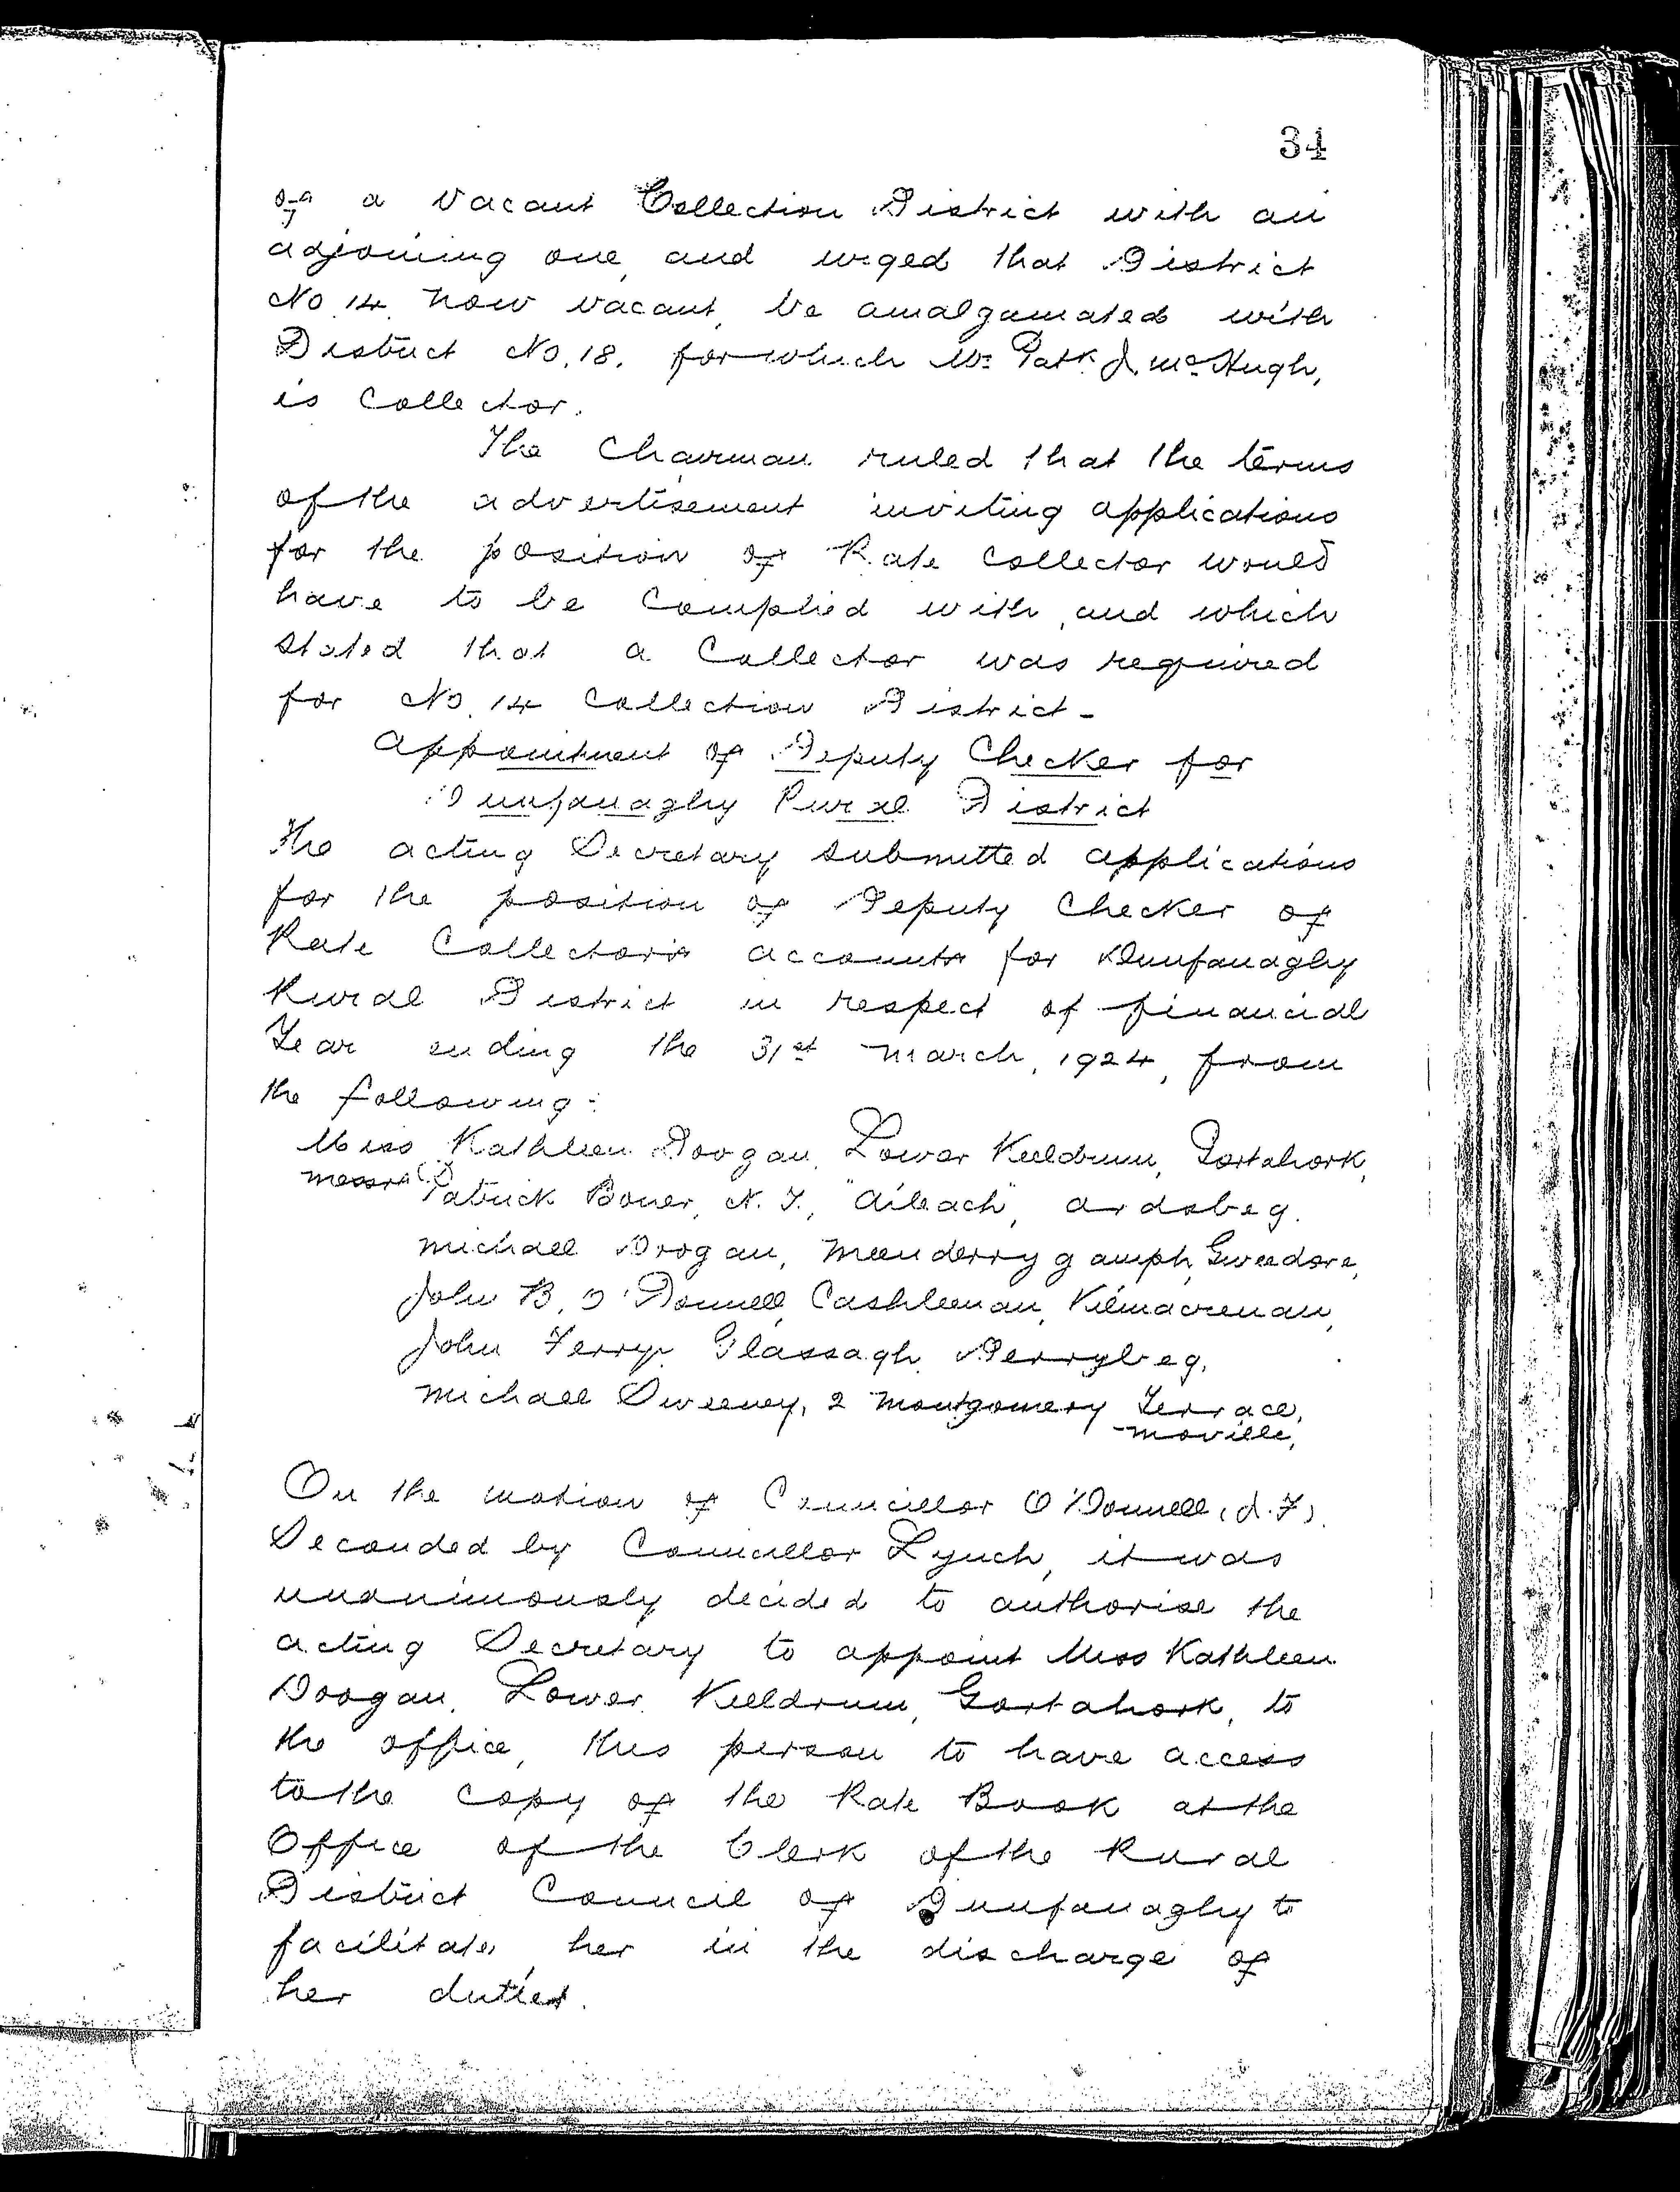 34
of a vacant Collection District with an
adjoining one, and urged that District
No. 14. now vacant, be amalgamated with
District No. 18. for which Mr. Patk. J. McHugh,
is Collector.
The Chairman ruled that the terms
of the advertisement inviting applications
for the position of Rate Collector would
have to be complied with, and which
stated that a Collector was required
for No. 14 Collection District -
Appointment of Deputy Checker for
Dunfanaghy Rural District
The acting Secretary submitted applications
for the position of Deputy Checker of
Rate Collectors accounts for Dunfanaghy
Rural District in respect of financial
Year ending the 31st March, 1924, from
the following:
Miss Kathleen Doogan, Lower Keeldrum, Gortahork,
Messrs Patrick Boner, N.T., "Aileach", Ardsbeg.
Michael Drogan, Meenderrygamph, Gweedore,
John B. O'Donnell, Cashleenan, Kilmacrenan,
John Ferry, Glassagh, Derrybeg,
Michael Sweeney, 2 Montgomery Terrace,
Moville,
On the motion of Councillor O'Donnell (J.F).
Seconded by Councillor Lynch, it was
unanimously decided to authorise the
acting Secretary to appoint Miss Kathleen
Doogan, Lower Keeldrum, Gortahork, to
the office, this person to have access
to the copy of the Rate Book at the
Office of the Clerk of the Rural
District Council of Dunfanaghy to
facilitate, her in the discharge of
her duties.